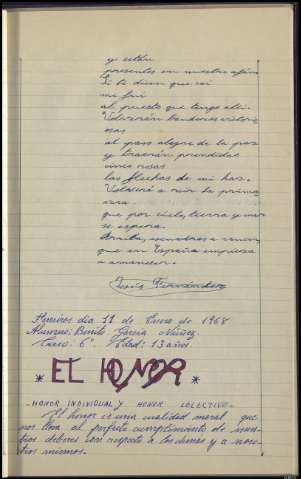 y están
presentes en nuestro afán
Si te dicen que caí
me fui
al puesto que tengo allí.
Volverán banderas victorio
sas
al paso alegre de la paz
y traerán prendidas
cinco rosas
las flechas de mi haz.
Volverá a reir la prima
vera
que por cielo, tierra y mar
se espera.
Arriba, escuadras a vencer
que en España empieza
a amanecer.
Jesús Fernández
día 11 de Enero de 1968
Alumno: Benito García Núñez
Curso: 6º Edad: 13 años.
* EL HONOR *
- HONOR INDIVIDUAL Y HONOR COLECTIVO -
El honor es una cualidad moral que
nos lleva al perfecto cumplimiento de nues
tros deberes con respecto a los demás y a noso
tros mismos.